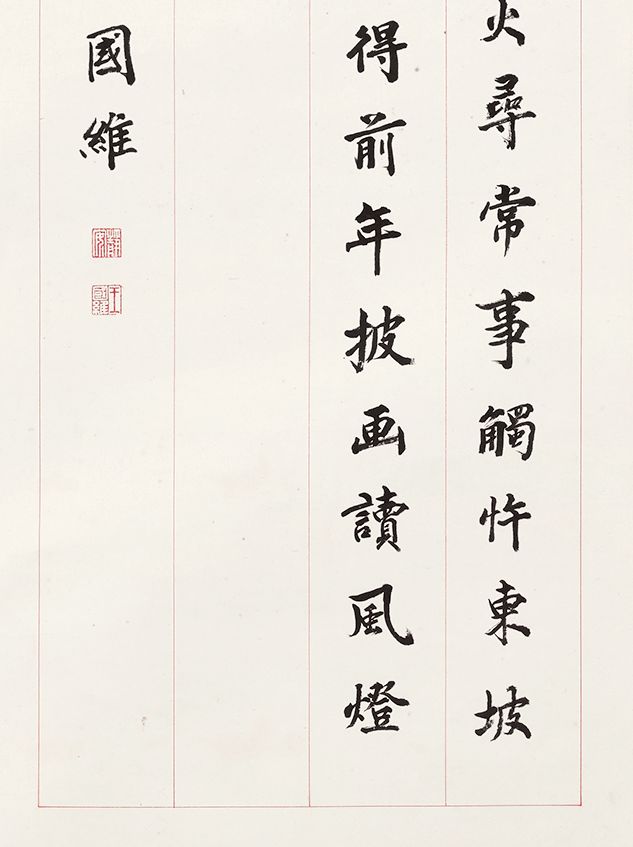 火尋常事觸忤東坡
得前年披画讀風燈
國維
靜安
王國維